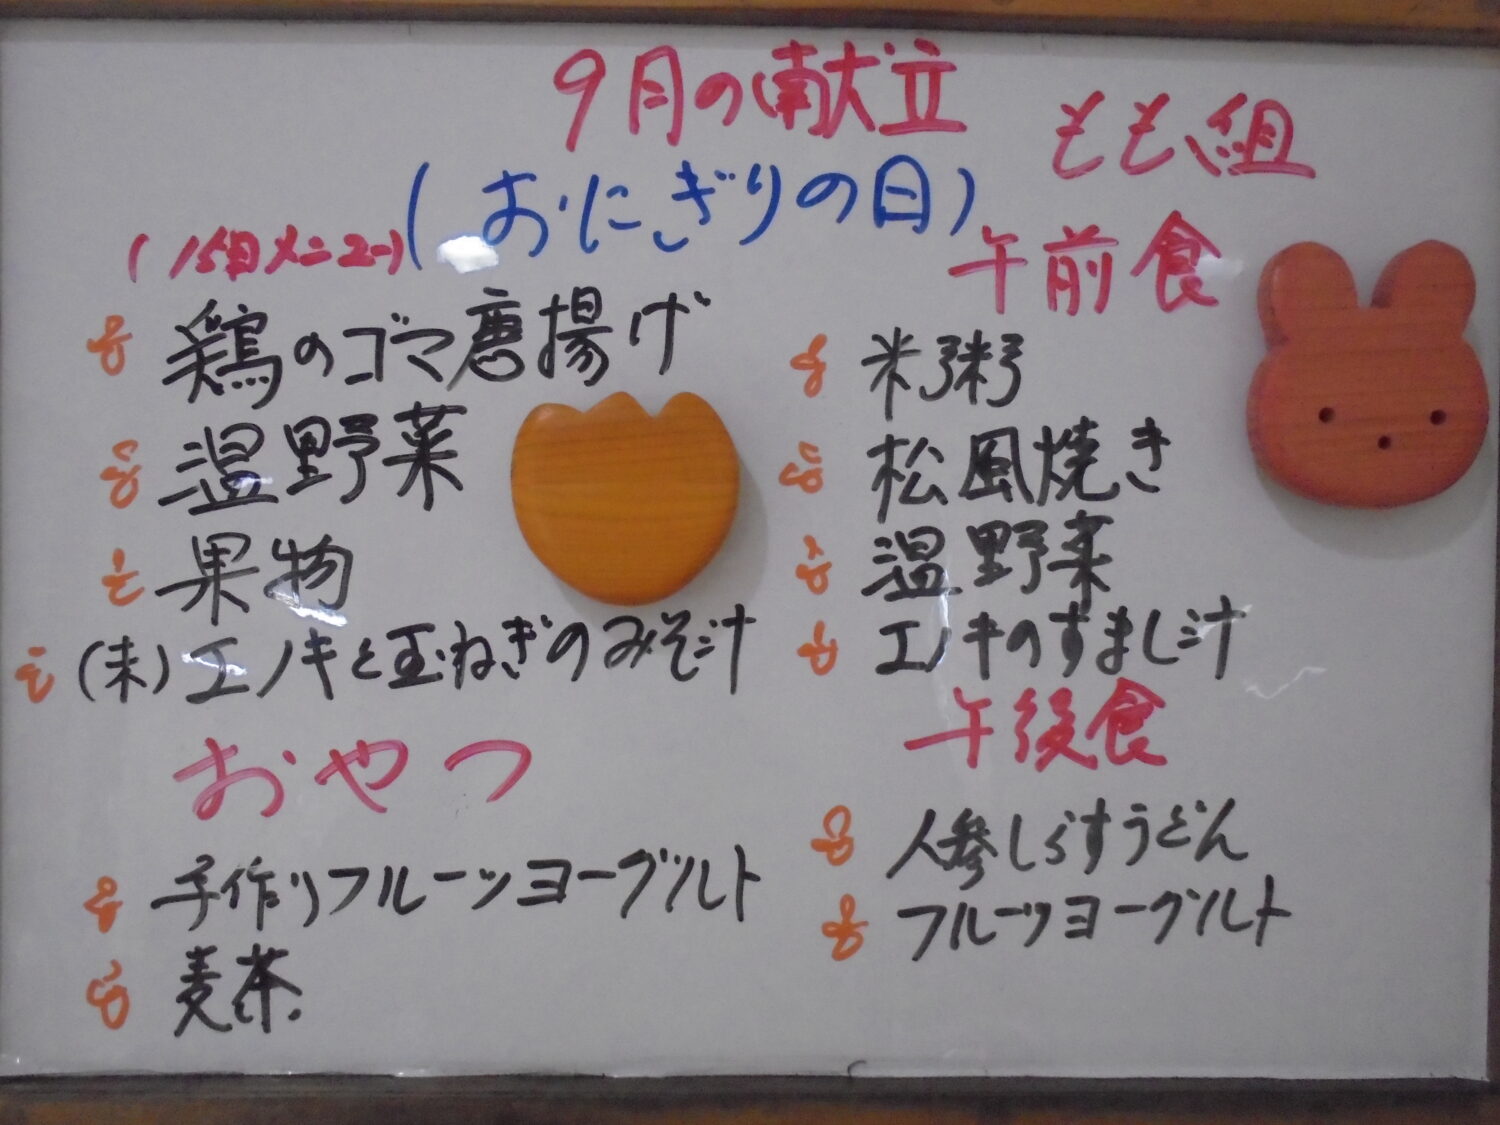 9月の献立
(おにぎりの日)
(15日メニュー)
鶏のゴマ唐揚げ
温野菜
果物
(未)エノキと玉ねぎのみそ汁
おやつ
手作りフルーツヨーグルト
麦茶
もも組
午前食
米粥
松風焼き
温野菜
エノキのすまし汁
午後食
人参しらすうどん
フルーツヨーグルト